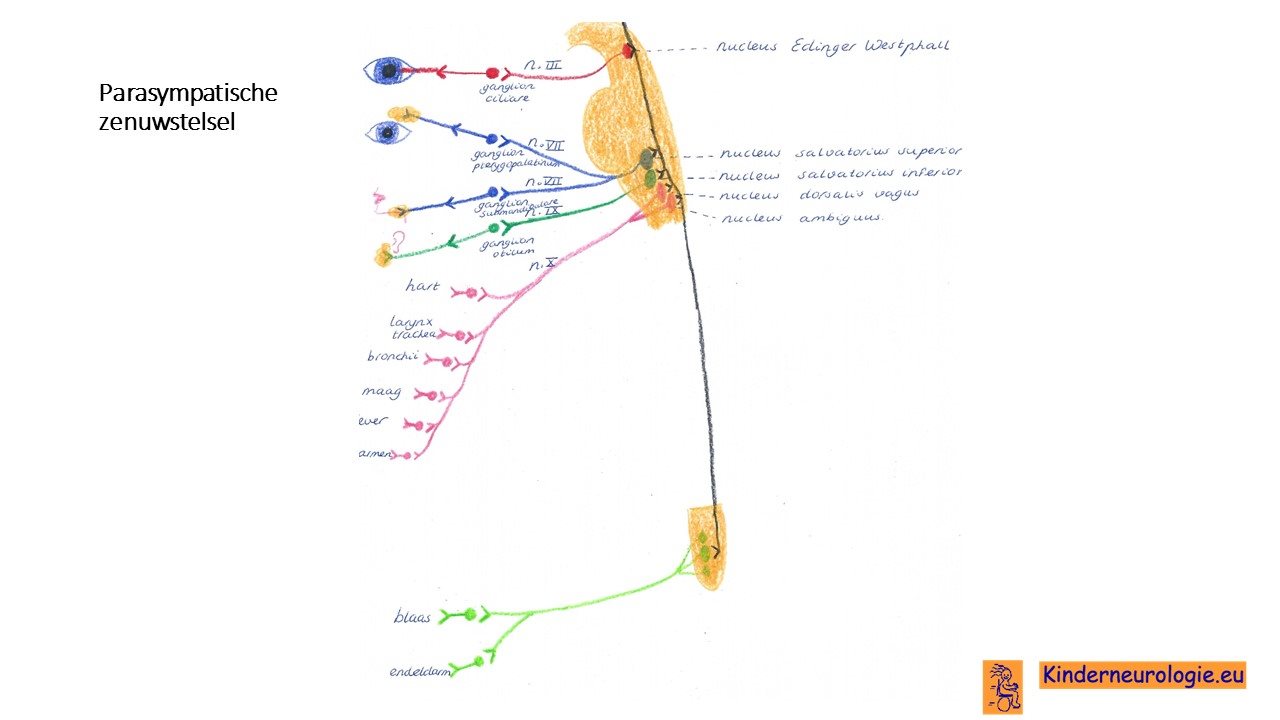 Parasympatische
zenuwstelsel
nucleus Edinger Westphall
n. III
ganglion
ciliare
n. VII
ganglion
pterygopalatinum
nucleus salvatorius superior
nucleus salvatorius inferior
nucleus dorsalis vagus
nucleus ambiguus.
n. VII
ganglion
submandibulare
n. IX
ganglion
oticum
n. X
hart
larynx
trachea
bronchii
maag
ever
armen
blaas
endeldarm
Kinderneurologie.eu